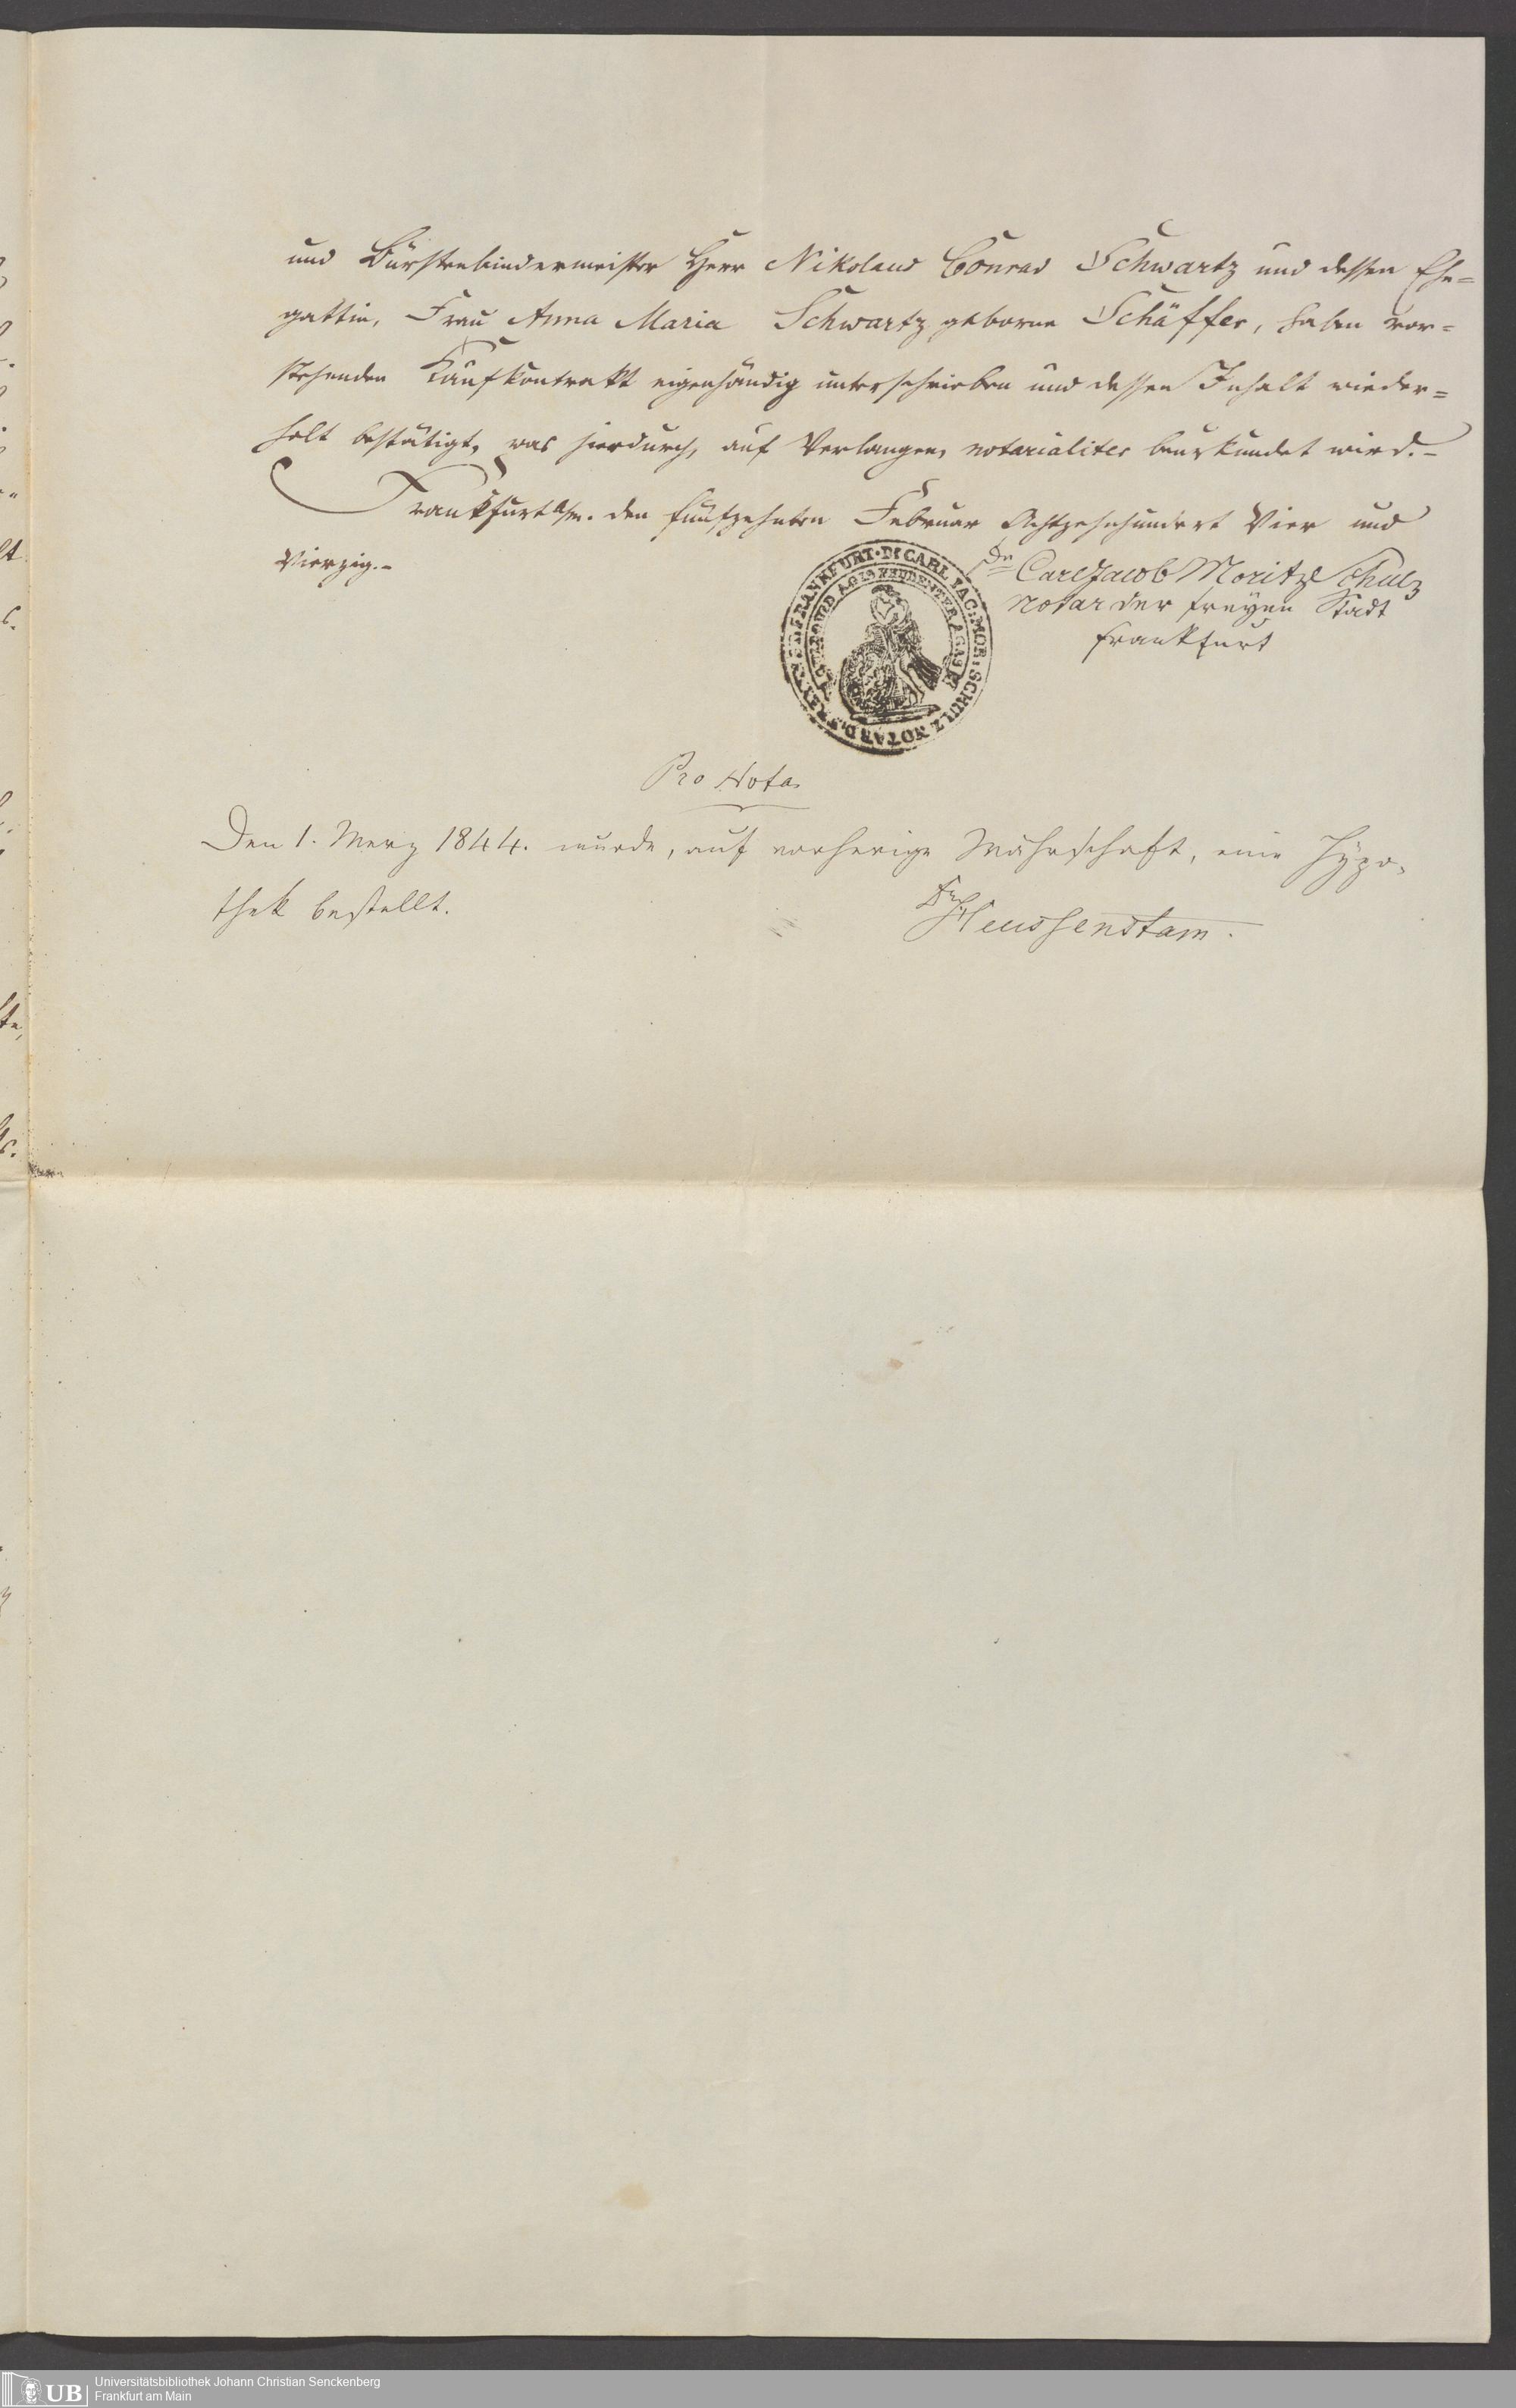 und Bürstenbindermeister Herr Nikolaus Conrad Schwartz und dessen Ehe=
gattin, Frau Anna Maria Schwartz geborne Schäffer, haben vor=
stehenden Kaufkontrakt eigenhändig unterschrieben und dessen Inhalt wieder=
holt bestätigt, was hierdurch, auf Verlangen, notarialiter beurkundet wird.–
Frankfurt a/m. den fünfzehnten Februar Achtzehnhundert Vier und
Vierzig.–
Dr Carl Jacob Moritz Schulz
Notar der freyen Stadt
Frankfurt
FRANKFURT · Dr CARL JAC: MOR: SCHULZ NOTAR D.
Pro Nota
Den 1. Merz 1844. wurde, auf vorherige Währschaft, eine Hypo,
thek bestellt.
Dr Heussenstam.
UB
Universitätsbibliothek Johann Christian Senckenberg
Frankfurt am Main